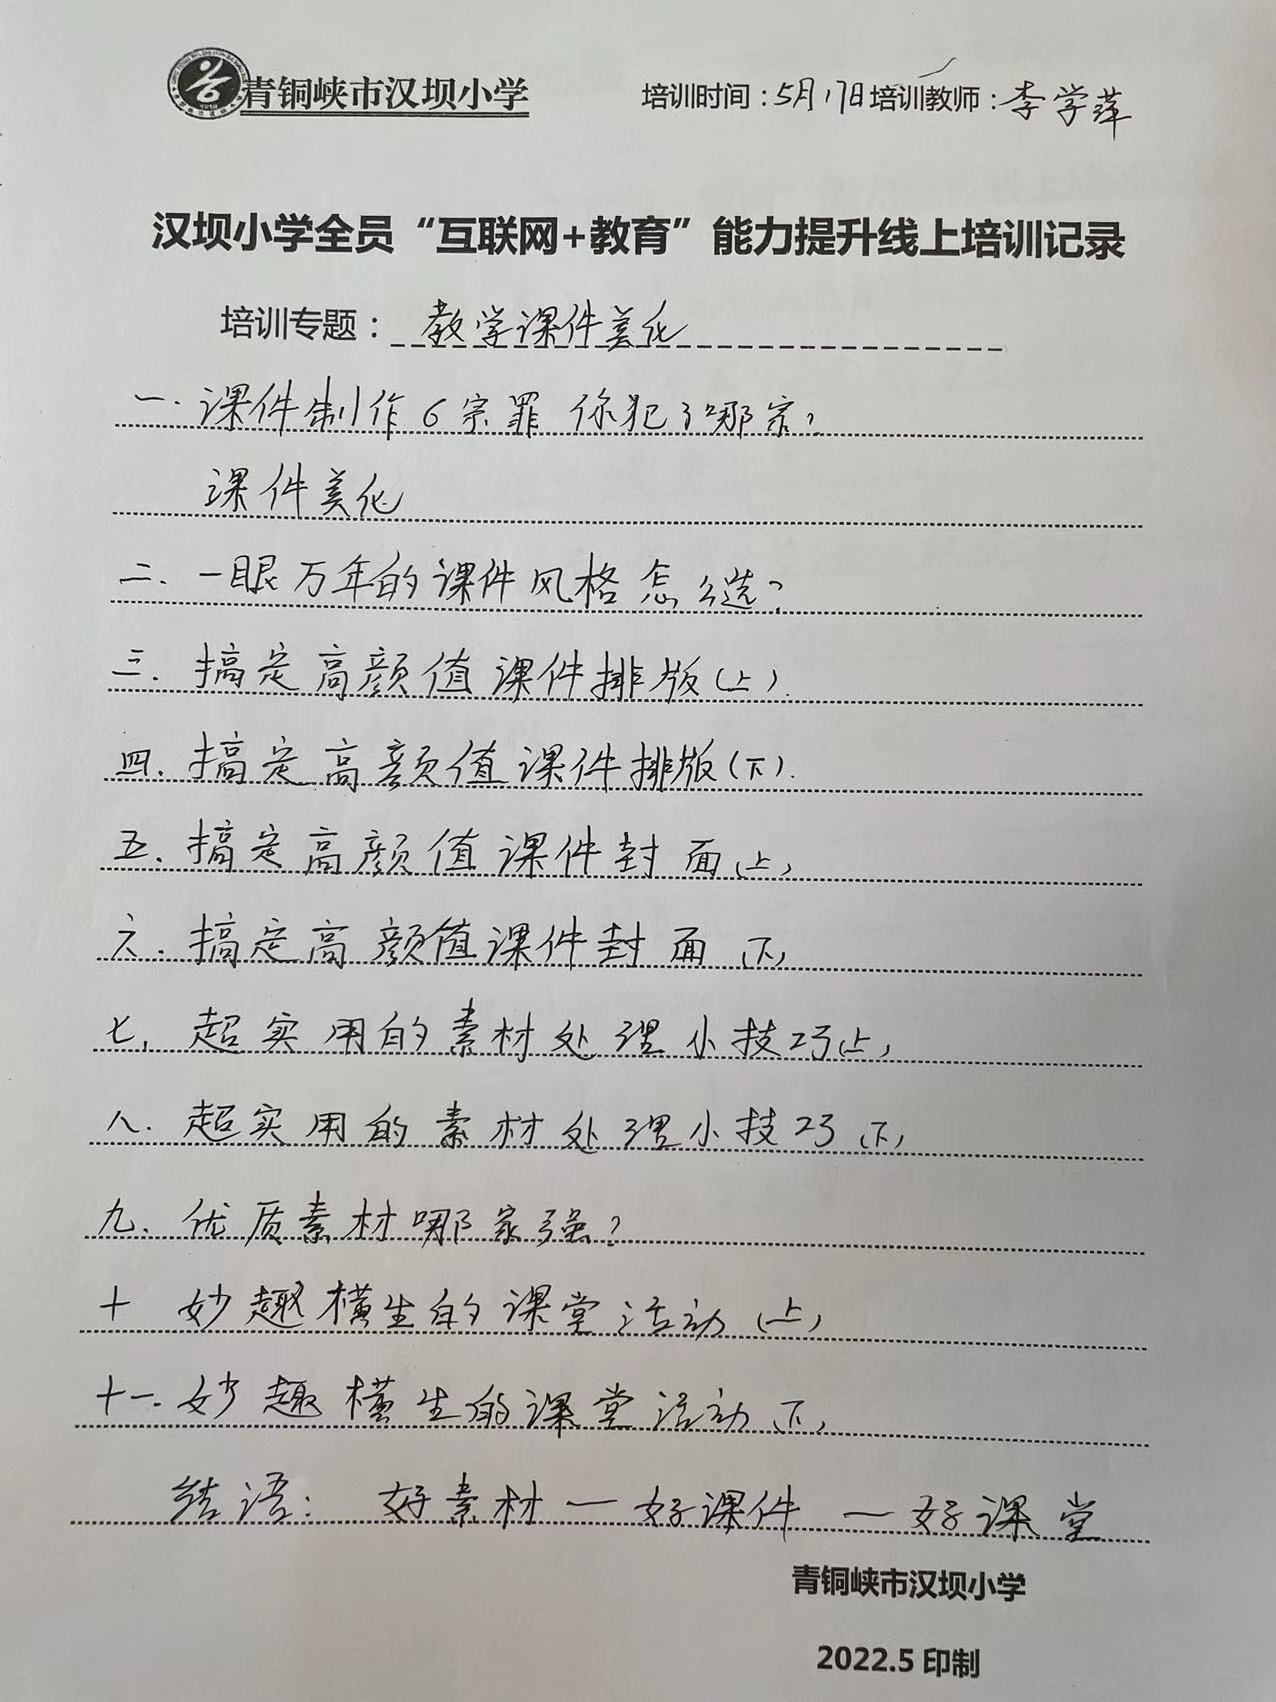 青铜峡市汉坝小学 培训时间:5月17日培训教师:李学萍
汉坝小学全员“互联网+教育”能力提升线上培训记录
培训专题:教学课件美化
一.课件制作6宗罪 你犯了哪宗?
课件美化
二.一眼万年的课件风格怎么选?
三.搞定高颜值课件排版(上).
四.搞定高颜值课件排版(下).
五.搞定高颜值课件封面(上)
六.搞定高颜值课件封面(下)
七.超实用的素材处理小技巧(上)
八.超实用的素材处理小技巧(下)
九.优质素材哪家强?
十 妙趣横生的课堂活动(上)
十一.妙趣横生的课堂活动(下)
结语:好素材—好课件—好课堂
青铜峡市汉坝小学
2022.5印制